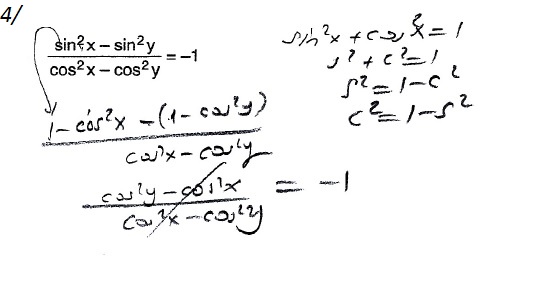 4/
sin²x – sin²y
cos²x – cos²y
= –1
sin²x + cos²x = 1
s² + c² = 1
s² = 1 – c²
c² = 1 – s²
1 – cos²x – (1 – cos²y)
cos²x – cos²y
cos²y – cos²x
cos²x – cos²y
= –1